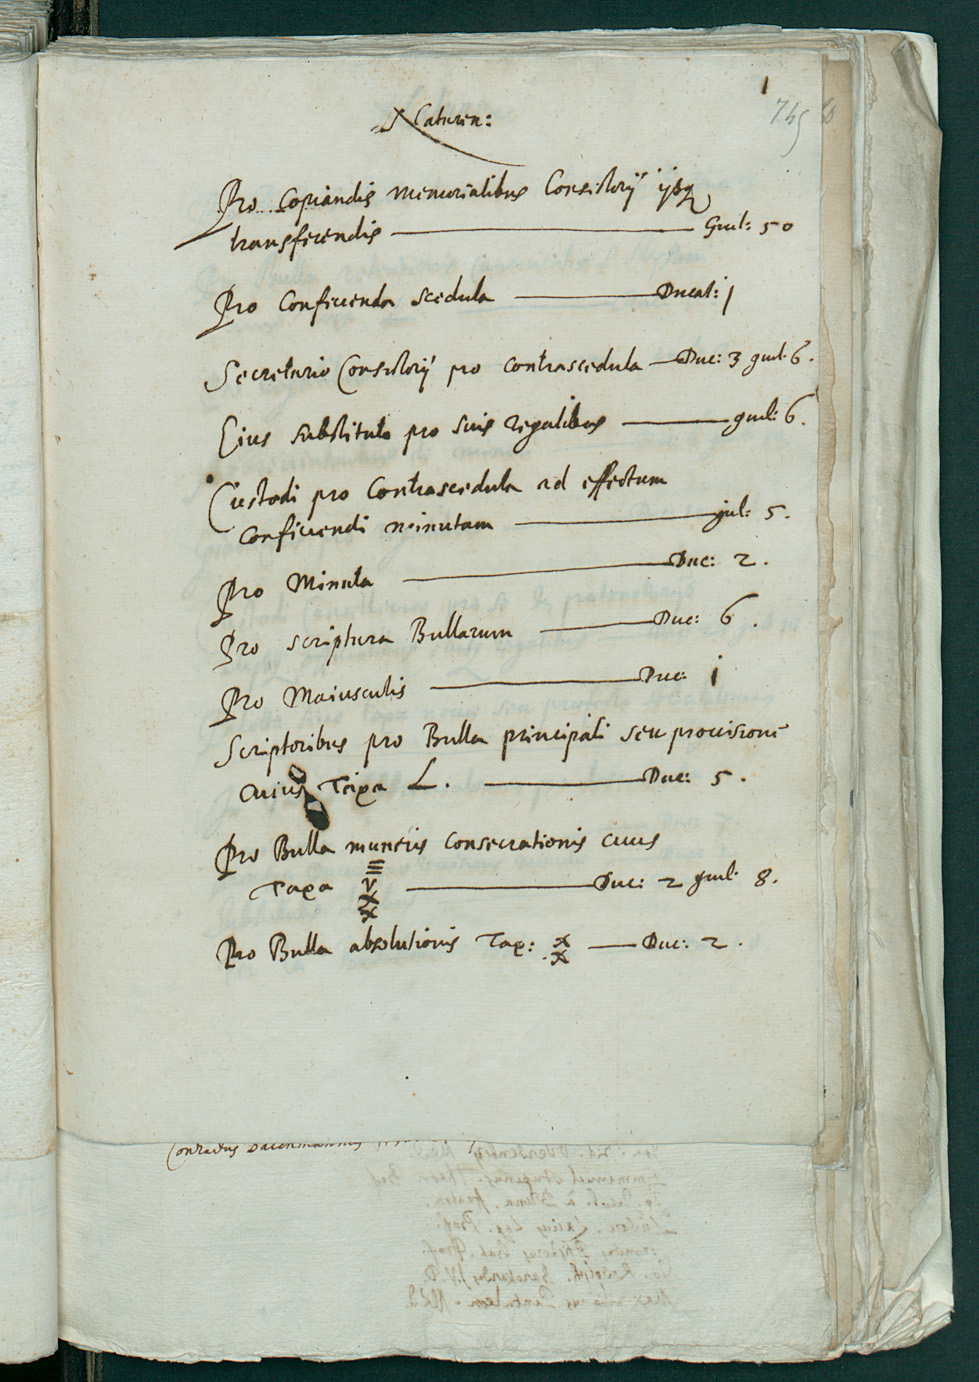 1
745
Caturcen:
Pro Copiandis memorialibus Consistorij ijsq
transferendis Giul: 50
Pro Conficienda scedula Ducat: j
Secretario Consistorij pro contrascedula Duc: 3 giul. 6.
Eius substituto pro suis regalibus giul: 6.
Custodi pro Contrascedula ad effectum
conficiendi minutam giul: 5.
Pro Minuta Duc: 2.
Pro scriptura Bullarum Duc: 6.
Pro Maiusculis Duc: j
Scriptoribus pro Bulla principali seu prouisionē
cuius Taxa L. Duc: 5.
Pro Bulla muneris consecrationis cuius
Taxa Duc: 2 giul. 8.
Pro Bulla absolutionis Tax: x x Duc: 2.
Conradus